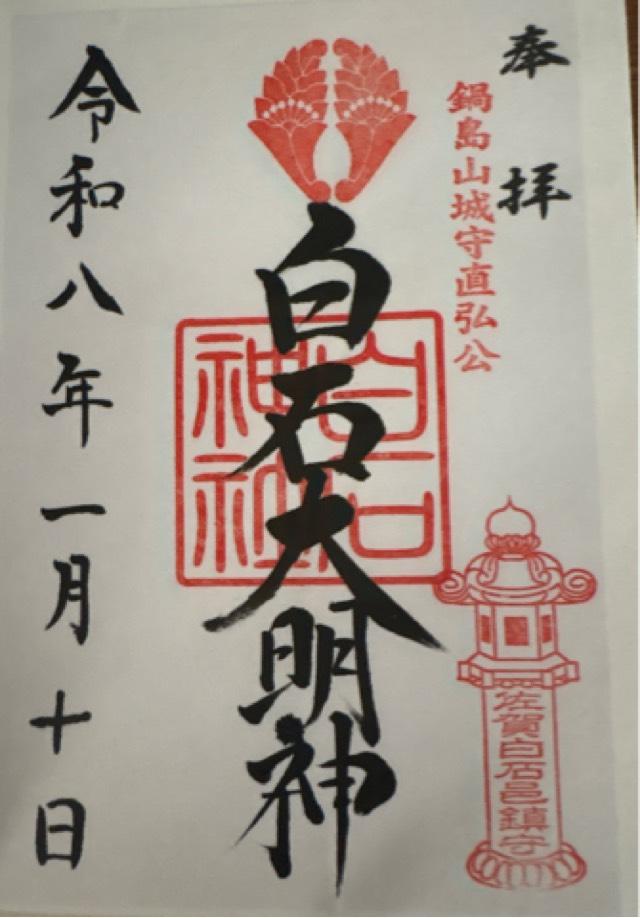 奉拝
鍋島山城守直弘公
白石大明神
白石神社
佐賀白石邑鎮守
令和八年一月十日